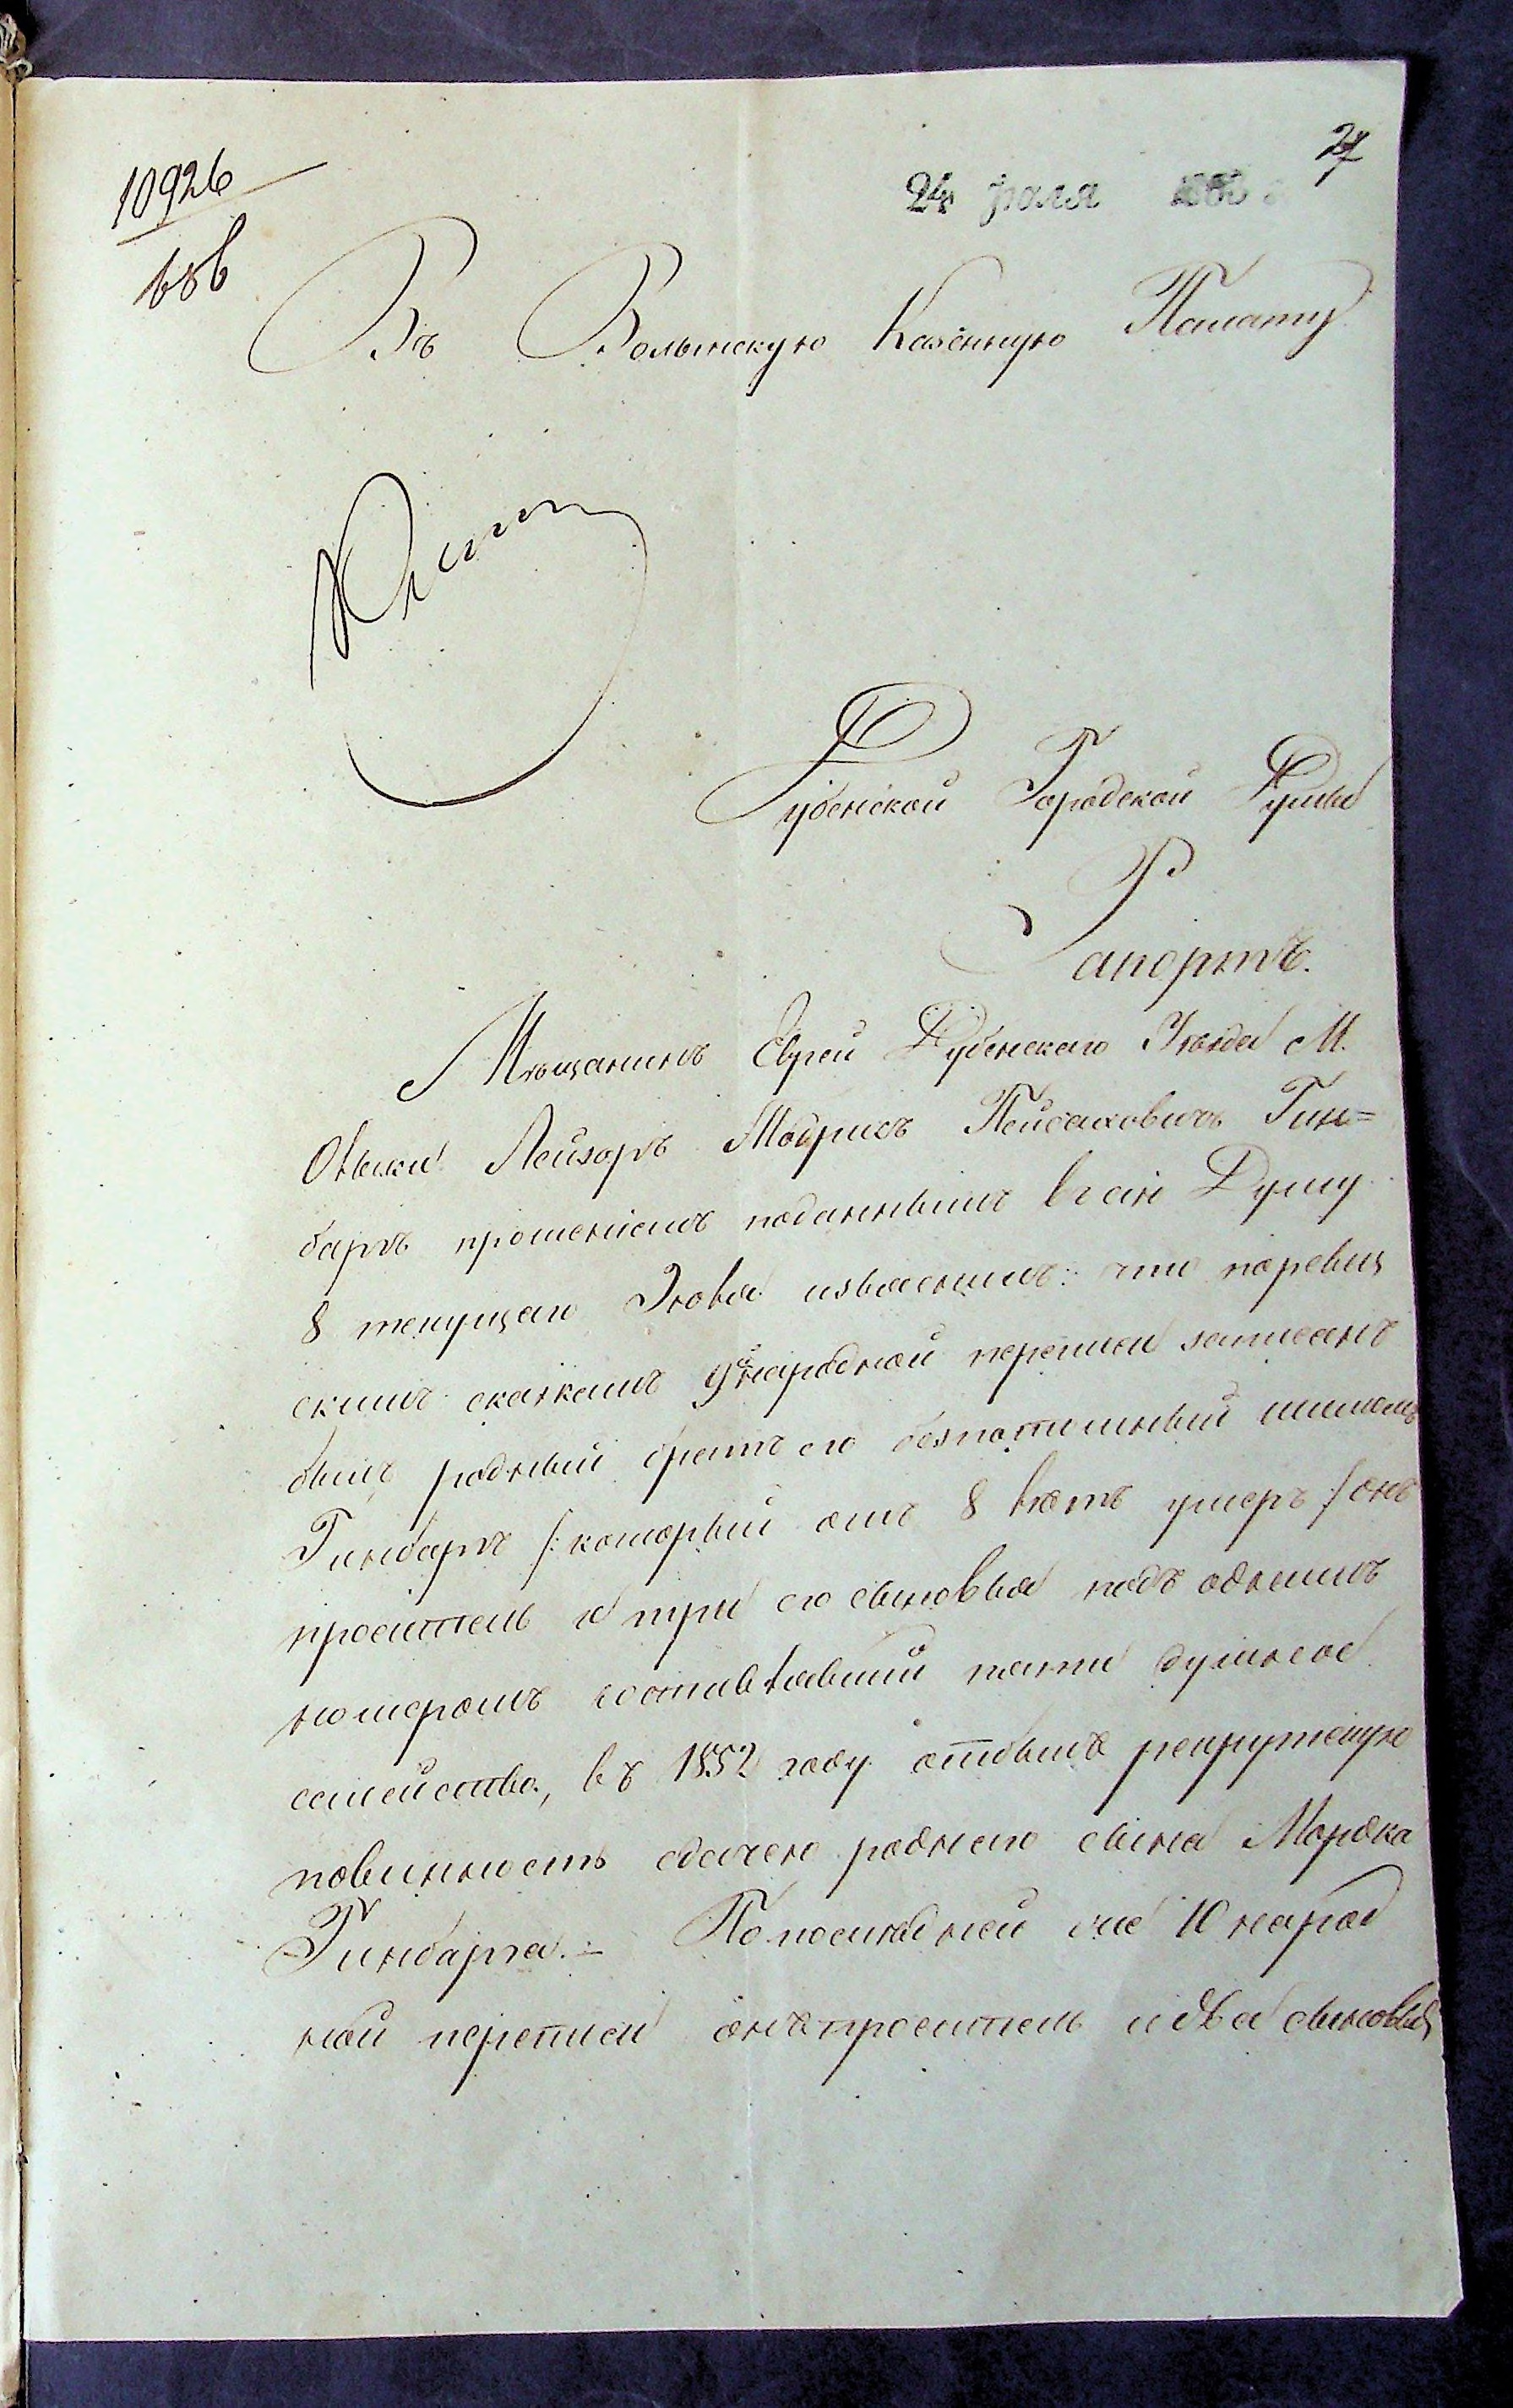 27
10926
24 раля
Въ Волынскую Казенную Палату
Дубенской Городской Думы
Рапортъ.
Мѣщанинъ Еврей Дубенскаго Уѣзда М.
Олыки Лейзоръ Мойришъ Пейсаховичъ Гин=
баргъ прошеніемъ поданнымъ въ сію Думу
8 текущаго Января изъяснилъ: что по ревиз
скимъ сказкамъ 9й народной переписи записанъ
былъ родный братъ его безпотомный Шимонъ
Гинбаргъ /: который отъ 8 лѣтъ умеръ / онъ
проситель и три его сыновья подъ однимъ
номеромъ составлявшій пяти душное
семейство, въ 1852 году отбылъ рекрутскую
повинность сдачею роднаго сына Мордка
Гинбарга. - По последней же 10 народ
ной переписи онъ проситель и два сыновья